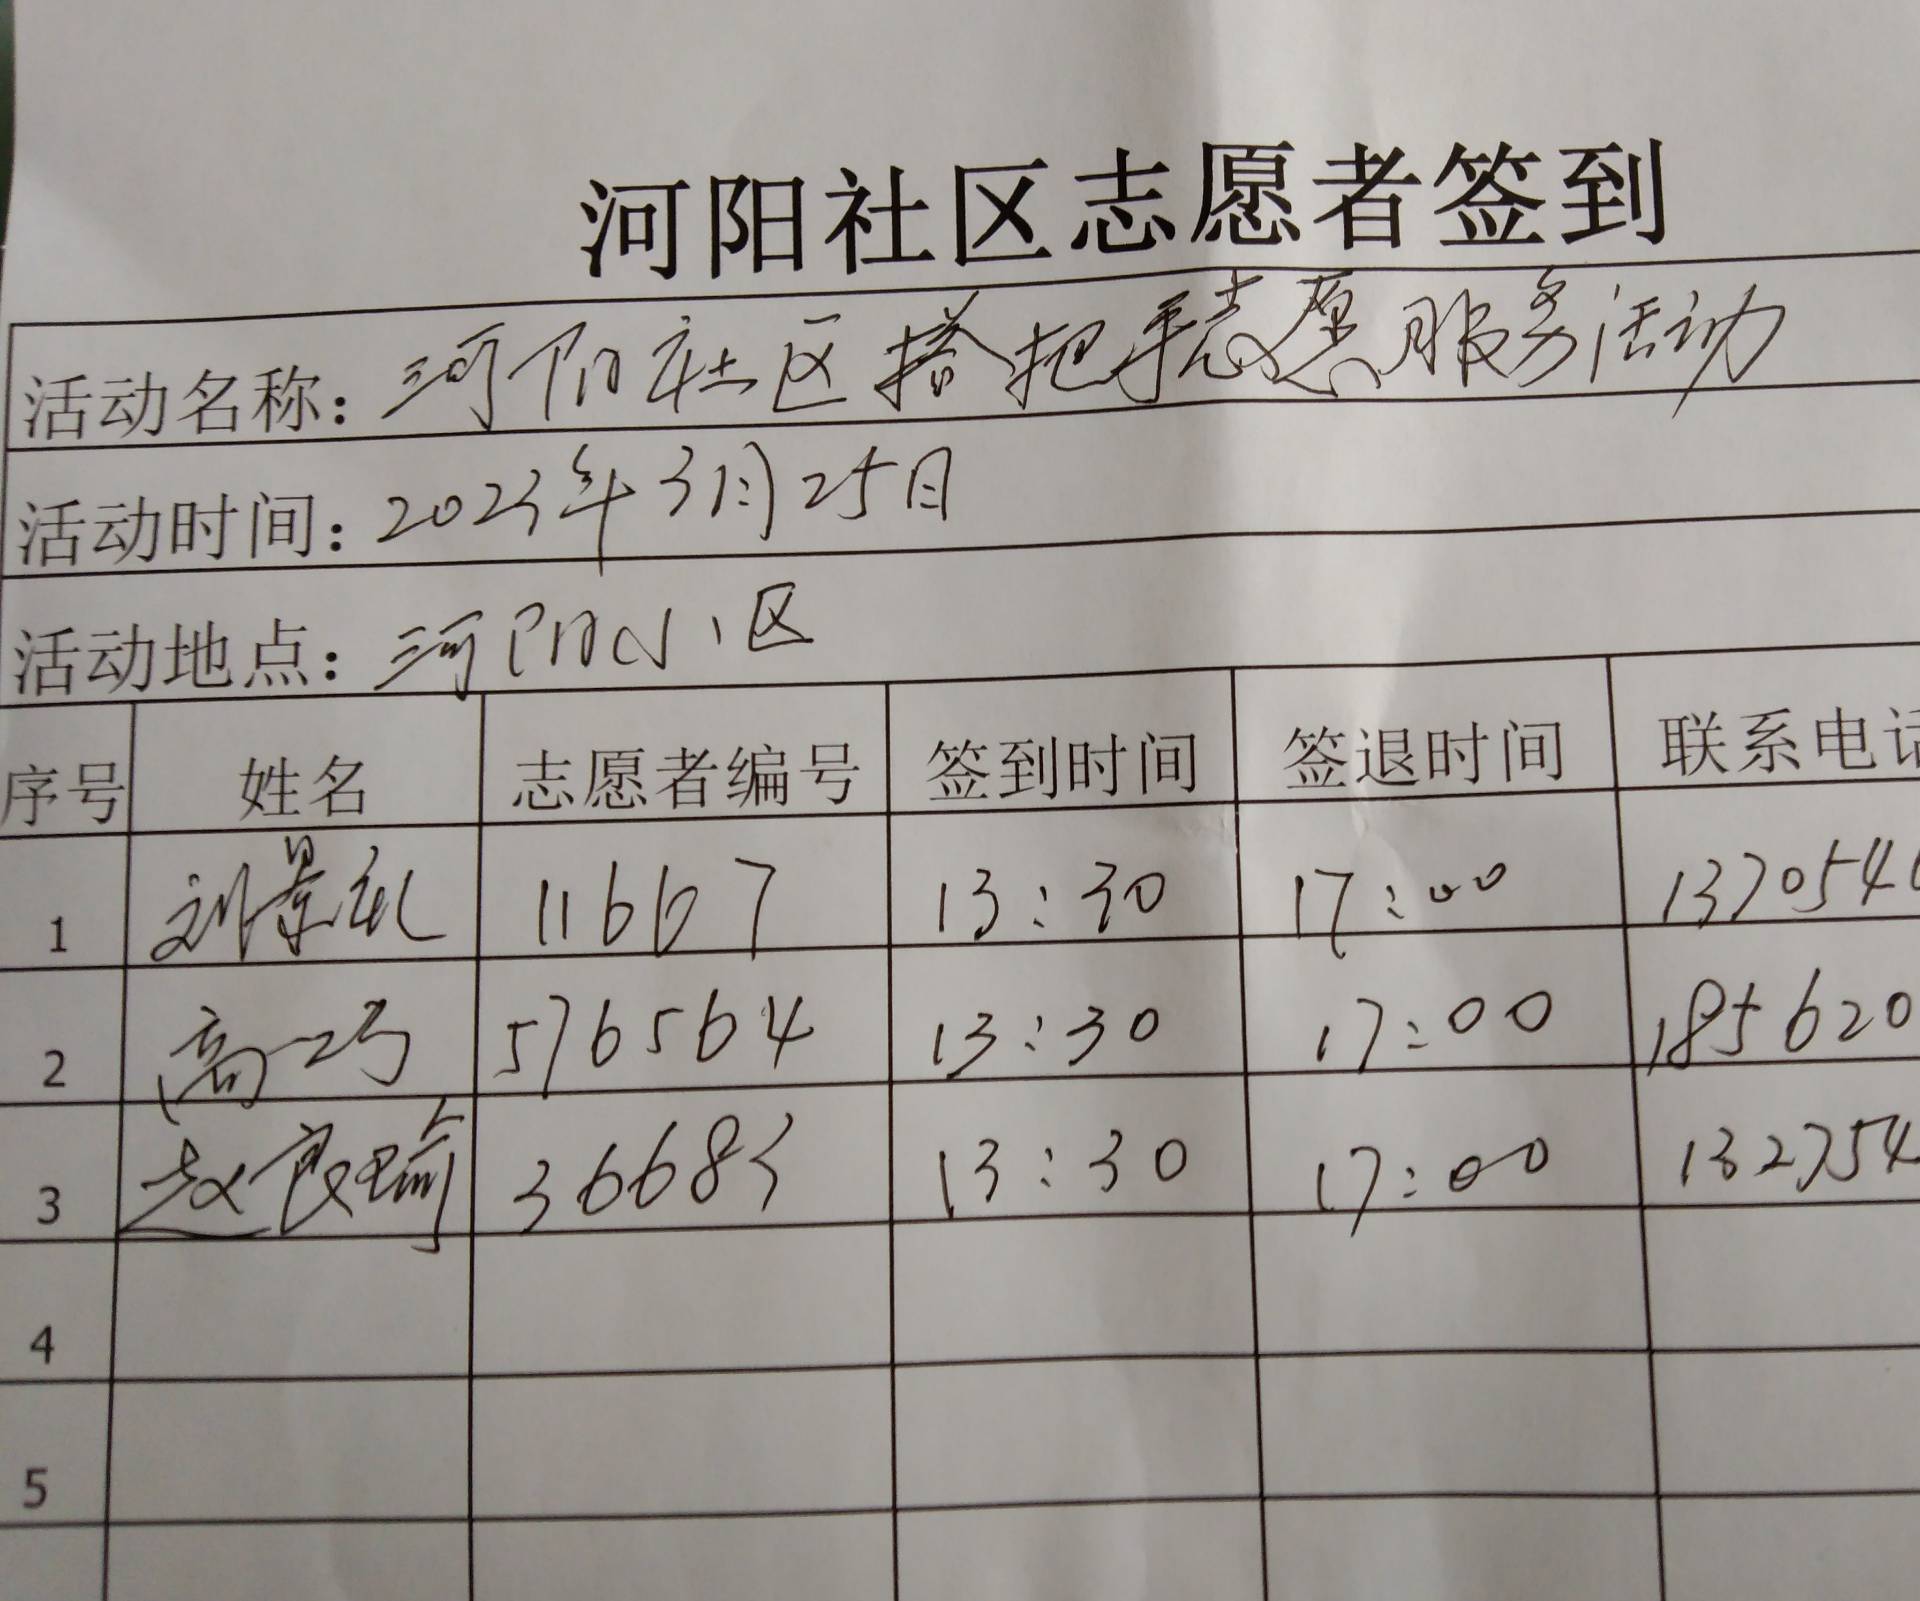 河阳社区志愿者签到
活动名称：河阳社区搭把手志愿服务活动
活动时间：2023年3月25日
活动地点：河阳小区
序号 姓名 志愿者编号 签到时间 签退时间 联系电话
1 刘景礼 11667 13:30 17:00 1370546
2 高一巧 576564 13:30 17:00 185620
3 赵良瑜 36683 13:30 17:00 132754
4
5